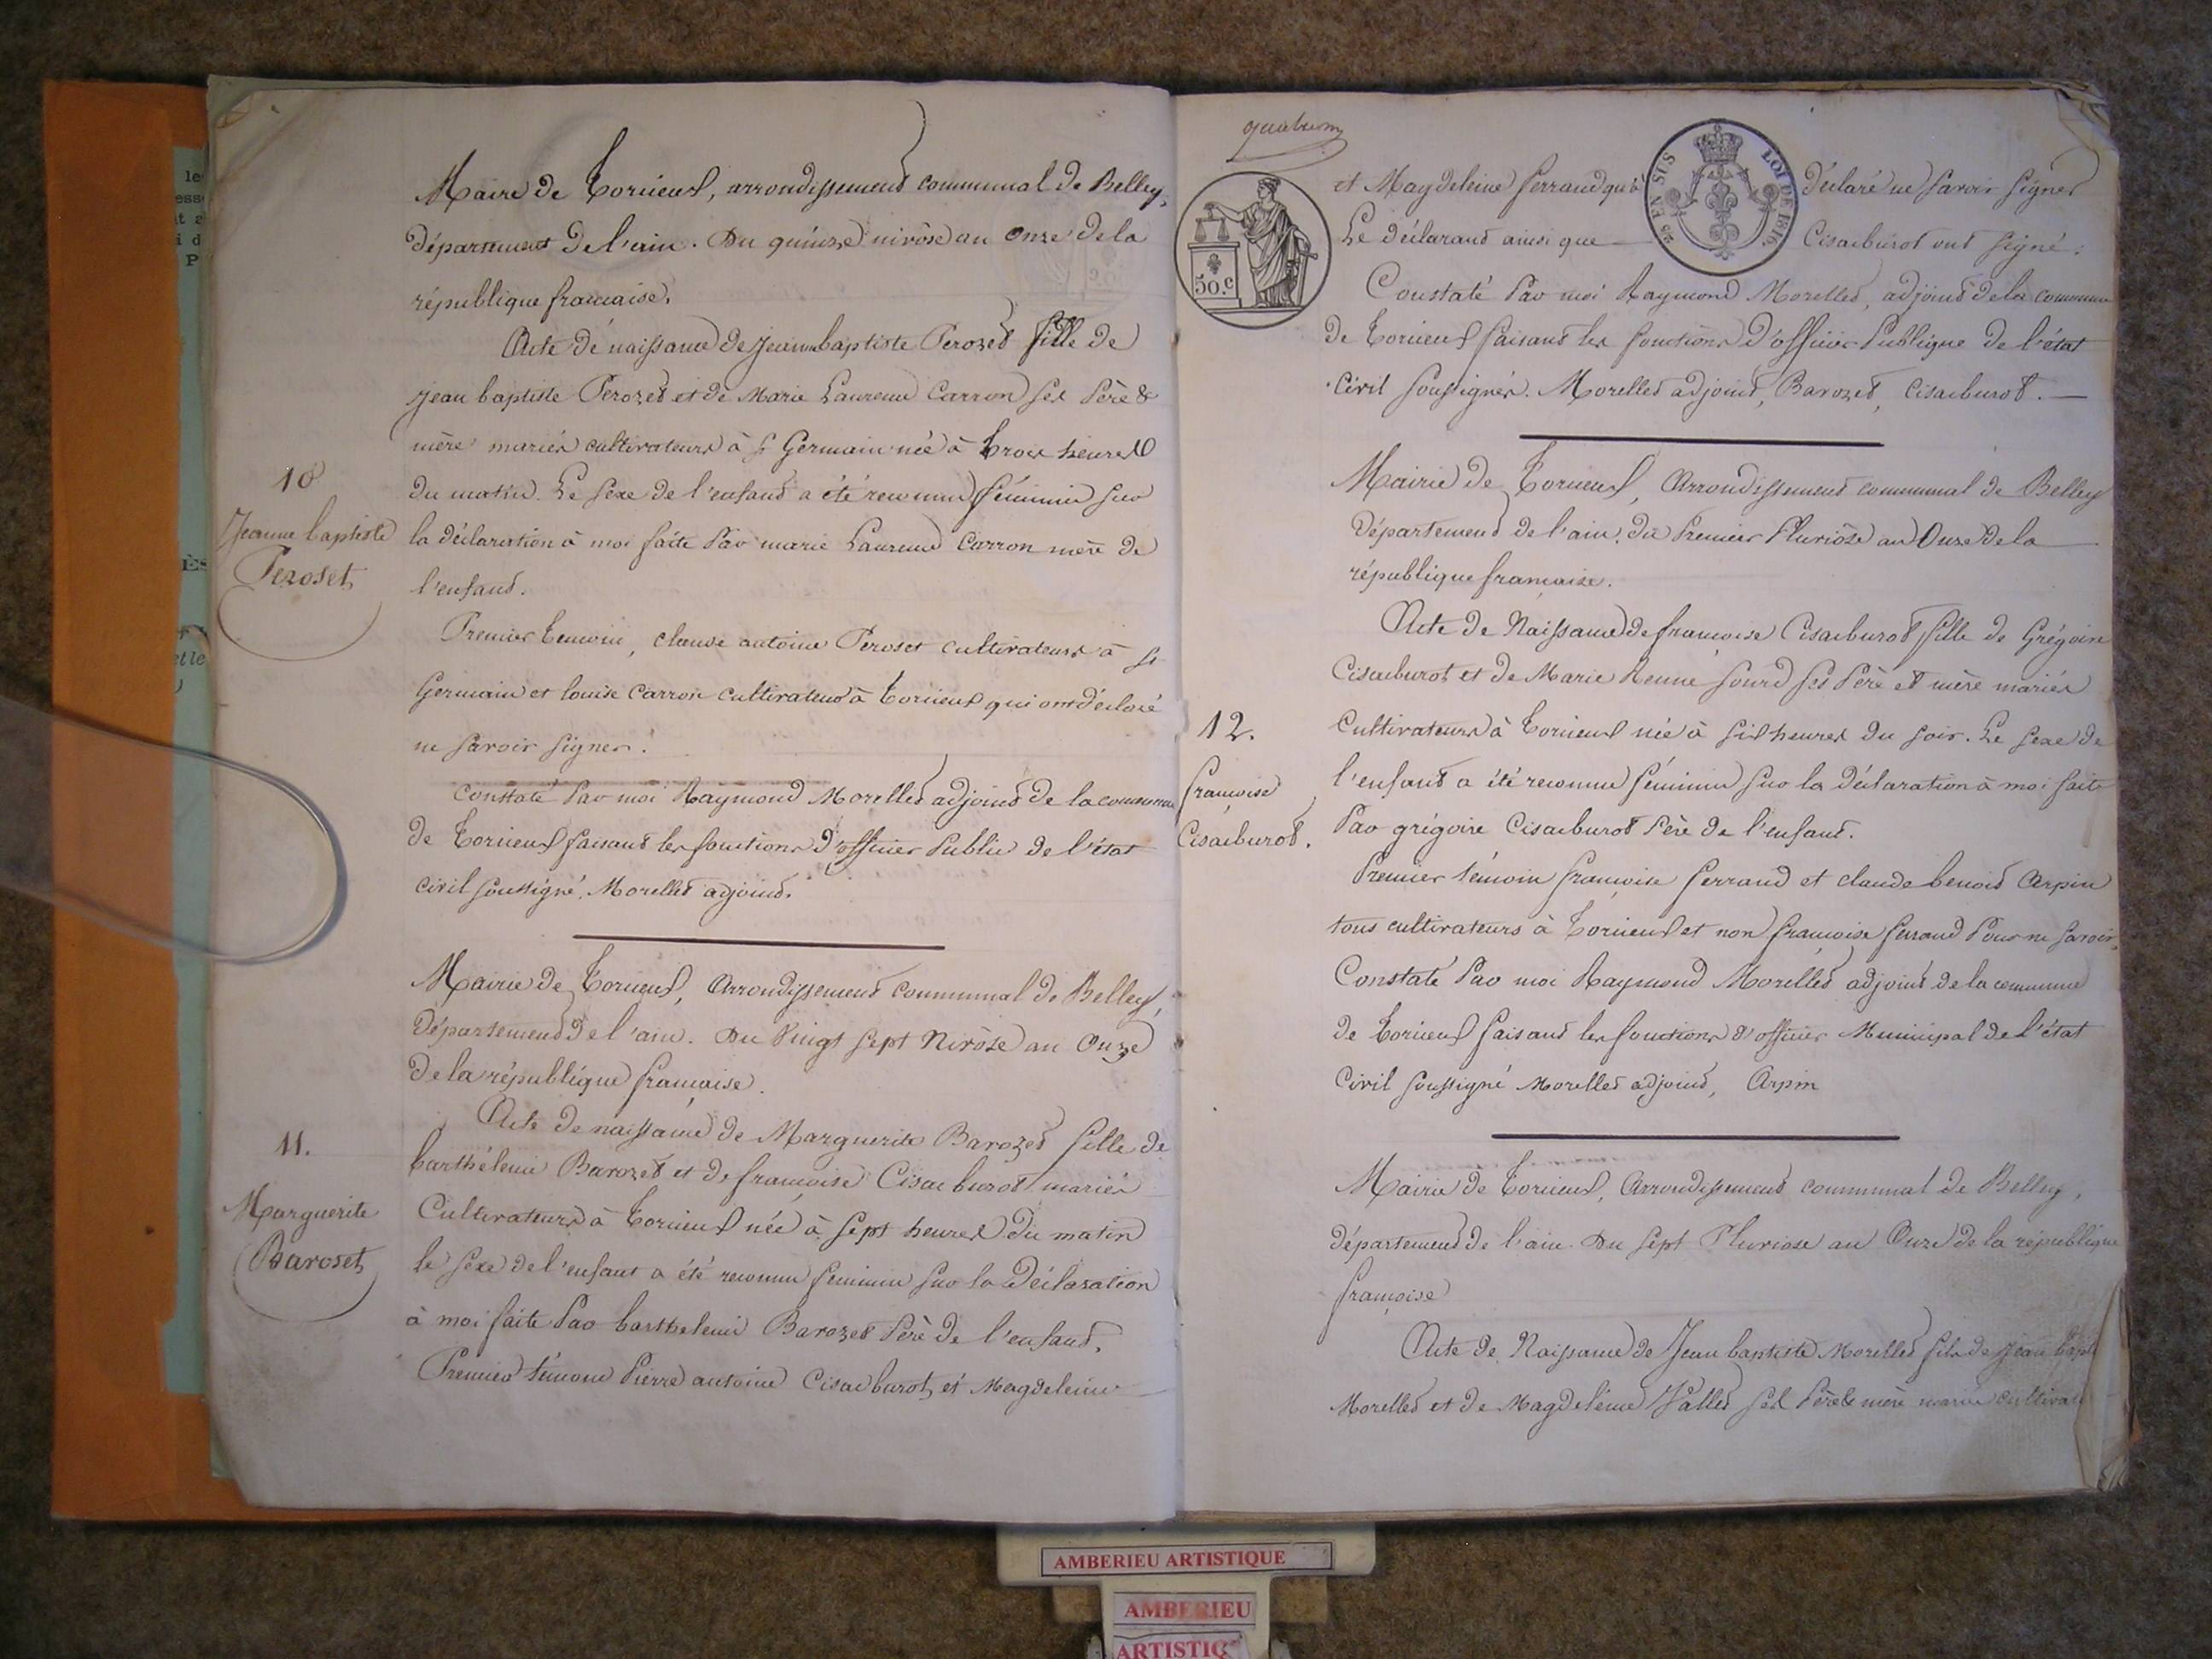 Maire de Torcieu, arrondissement communal de Belley,
département de l'ain. Du quinze nivôse an onze de la
république française.
Acte de naissance de Jeanne baptiste Perozet fille de
jean baptiste Perozet et de Marie Laurence Carron ses Père &
mère mariés cultivateurs à St Germain née à trois heures
du matin. Le sexe de l'enfant a été reconnu féminin sur
10
Jeanne baptiste
Peroset
la déclaration à moi faite Par marie Laurence Carron mère de
l'enfant.
Premier temoin, claude antoine Peroset cultivateurs à St
Germain et louise Carron cultivateur à Torcieu qui ont déclaré
ne savoir signer.
Constaté Par moi Raymond Morellet adjoint de la commune
de Torcieu faisant les fonctions d'officier Public de l'état
civil soussigné. Morellet adjoint.
Mairie de Torcieu, Arrondissement communal de Belley,
Département de l'ain. Du Vingt sept Nivôse an Onze
de la république française.
Acte de naissance de Marguerite Barozet fille de
11.
Marguerite
Baroset
barthélemi Barozet et de françoise Cisacburot mariés
Cultivateurs à Torcieu née à sept heures du matin
le sexe de l'enfant a été reconnu feminin sur la Déclaration
à moi faite Par barthelemi Barozet Père de l'enfant.
Premier témoin Pierre antoine Cisacburot et Magdeleine
50.c
25 EN SUS LOI DE 1816
et Magdeleine ferrand qui a déclaré ne savoir signer
Le déclarant ainsi que Cisacburot ont signé.
Constaté Par moi Raymond Morellet, adjoint de la commune
de Torcieu faisant les fonctions d'officier Publique de l'état
civil soussignés. Morellet adjoint, Barozet, Cisacburot.
Mairie de Torcieu, Arrondissement communal de Belley
Département de l'ain. du Premier Pluviôse an Onze de la
république française.
Acte de Naissance de françoise Cisacburot fille de Grégoire
Cisacburot et de Marie jourd ses Père et mère mariés
12.
françoise
Cisacburot.
Cultivateurs à Torcieu née à six heures du soir. Le sexe de
l'enfant a été reconnu féminin sur la déclaration à moi faite
Par grégoire Cisacburot Père de l'enfant.
Premier témoin françoise ferrand et claude benoit Arpin
tous cultivateurs à Torcieu et non françoise ferrand Pour ne savoir.
Constaté Par moi Raymond Morellet adjoint de la commune
de Torcieu faisant les fonctions d'officier Municipal de l'état
Civil soussigné Morellet adjoint, Arpin
Mairie de Torcieu, Arrondissement communal de Belley,
département de l'ain. Du sept Pluviose an Onze de la république
françoise
Acte de Naissance de Jean baptiste Morellet fils de jean bapti
Morellet et de Magdeleine Jallet ses Père & mère mariés cultivat
AMBERIEU ARTISTIQUE
AMBERIEU
ARTISTIQ